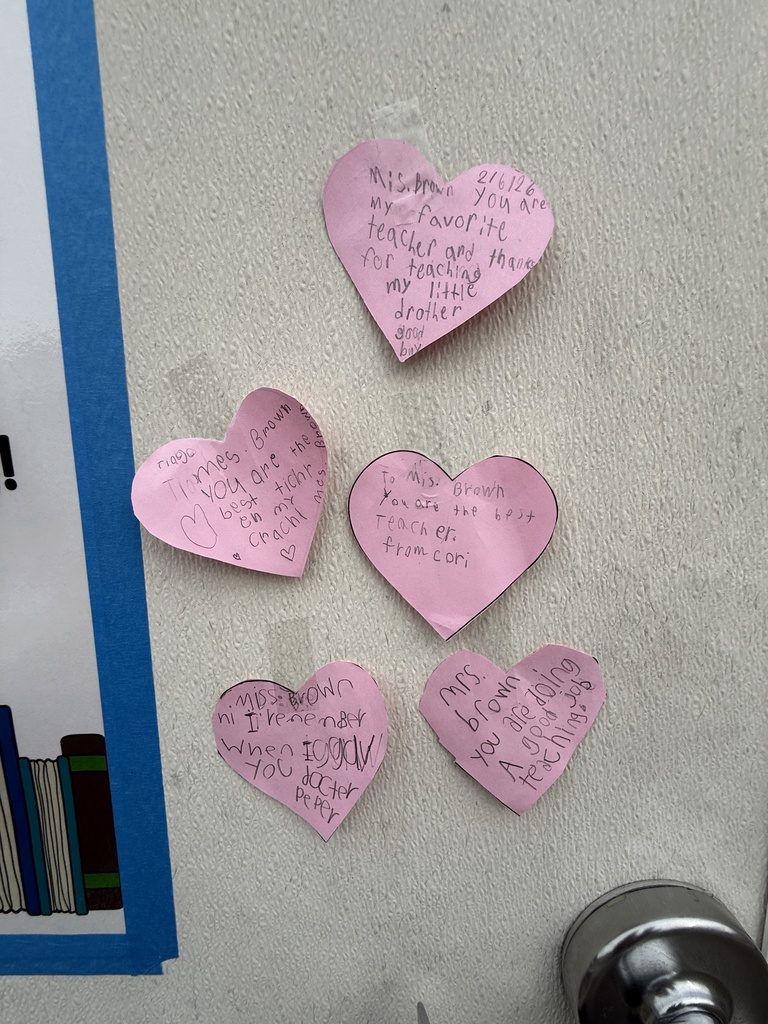 !
Mis. Brown 2/6/26
my favorite You are
teacher and thanks
for teaching
my little
drother
good
buy
Brown
you are the
best tichr
en my
crachl
To Mis. Brown
You are the best
Teacher.
from cori
MISS. BROWN
hi I remember
When I
YOU docter
PePer
Mrs.
brown
you are doing
A good job
teaching.